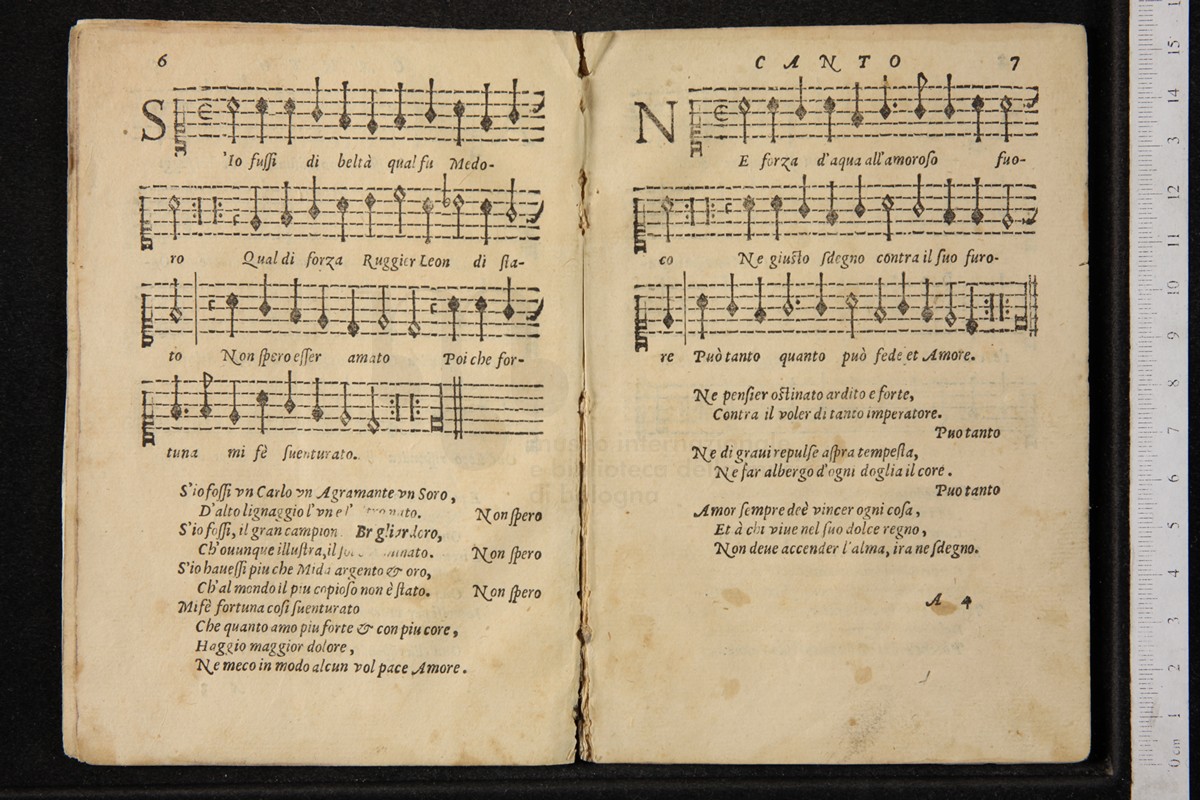 6
S'Io fuſſi di beltà qual fu Medo-
ro Qual di forza Ruggier Leon di ſta-
to Non ſpero eſſer amato Poi che for-
tuna mi fè ſuenturato.
S'io foſſi vn Carlo vn Agramante vn Soro,
D'alto lignaggio l'vn e l' Non ſpero
S'io foſſi, il gran campion
Ch'ouunque illuſtra, il Non ſpero
S'io haueſſi piu che Mida argento & oro,
Ch'al mondo il piu copioſo non è ſtato. Non ſpero
Mi fè fortuna coſi ſuenturato
Che quanto amo piu forte & con piu core,
Haggio maggior dolore,
Ne meco in modo alcun vol pace Amore.
CANTO 7
NE forza d'aqua all'amoroſo fuo-
co Ne giuſto ſdegno contra il ſuo furo-
re Può tanto quanto può fede et Amore.
Ne penſier oſtinato ardito e forte,
Contra il voler di tanto imperatore.
Puo tanto
Ne di graui repulſe aſpra tempeſta,
Ne far albergo d'ogni doglia il core.
Puo tanto
Amor ſempre deè vincer ogni coſa,
Et à chi viue nel ſuo dolce regno,
Non deue accender l'alma, ira ne ſdegno.
A 4
museo internazionale
e biblioteca della
di bologna
0 cm 1 2 3 4 5 6 7 8 9 10 11 12 13 14 15